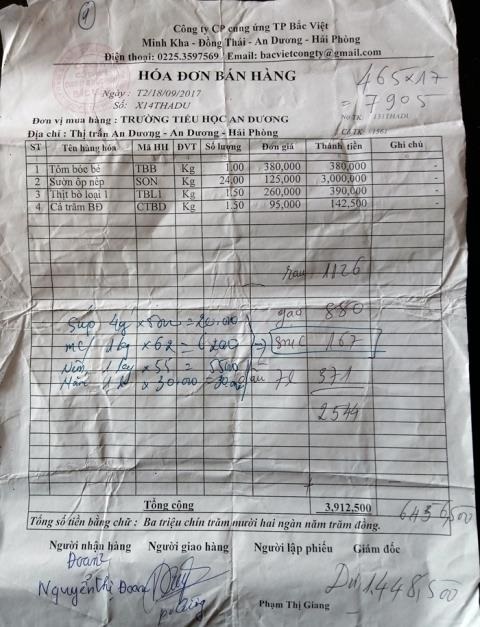 9
Công ty CP cung ứng TP Bắc Việt
Minh Kha - Đồng Thái - An Dương - Hải Phòng
Điện thoại: 0225.3597569 Email: bacvietcongty@gmail.com
HÓA ĐƠN BÁN HÀNG
465 x 17
= 7905
Ngày : T2/18/09/2017
Số: X14THADU
Đơn vị mua hàng : TRƯỜNG TIỂU HỌC AN DƯƠNG
Nợ TK 131THADU
Địa chỉ : Thị trấn An Dương - An Dương - Hải Phòng
Có TK 1561
ST Tên hàng hóa Mã HH ĐVT Số lượng Đơn giá Thành tiền Ghi chú
1 Tôm bóc bé TBB Kg 1.00 380,000 380,000 -
2 Sườn ốp nẹp SON Kg 24.00 125,000 3,000,000 -
3 Thịt bò loại 1 TBL1 Kg 1.50 260,000 390,000 -
4 Cá trắm BĐ CTBD Kg 1.50 95,000 142,500 -
rau 1126
gạo 880
Súp 4g x 5000 = 20.000
mc/ 1kg x 62 = 6200 => 8mc 167
1kg x 55 = 5500
x 30.000 = 30.000
dầu 7l 371
2544
Tổng cộng 3,912,500
6456,500
Tổng số tiền bằng chữ : Ba triệu chín trăm mười hai ngàn năm trăm đồng.
Người nhận hàng Người giao hàng Người lập phiếu Giám đốc
Đoan
Nguyễn Thị Đoan
Dư 1448,500
Phạm Thị Giang